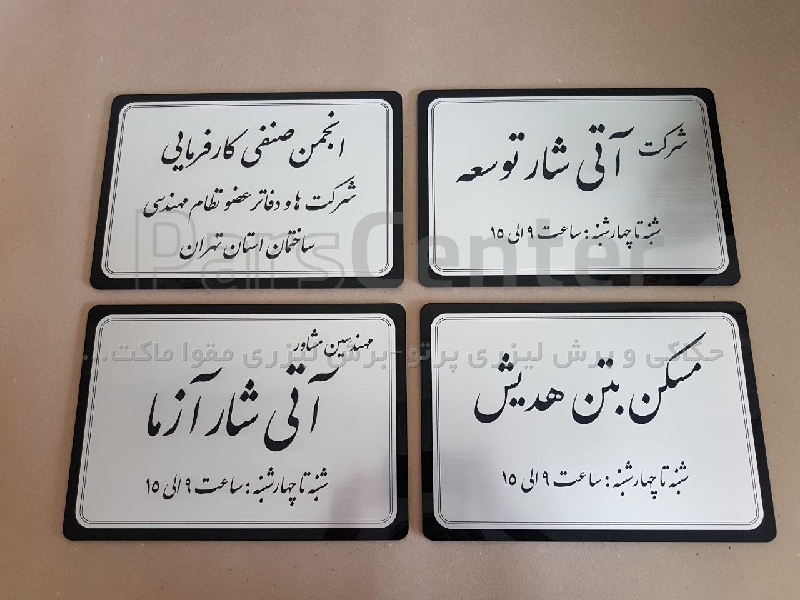 انجمن صنفی کارفرمایی
شرکت ها و دفاتر عضو نظام مهندسی
ساختمان استان تهران
شرکت آتی شار توسعه
شنبه تا چهارشنبه : ساعت ۹ الی ۱۵
ParsCenter
حکاکی و برش لیزری پرتو-برش لیزری مقوا ماکت...
مهندسین مشاور
آتی شار آزما
شنبه تا چهارشنبه : ساعت ۹ الی ۱۵
مسکن بتن هدیش
شنبه تا چهارشنبه : ساعت ۹ الی ۱۵